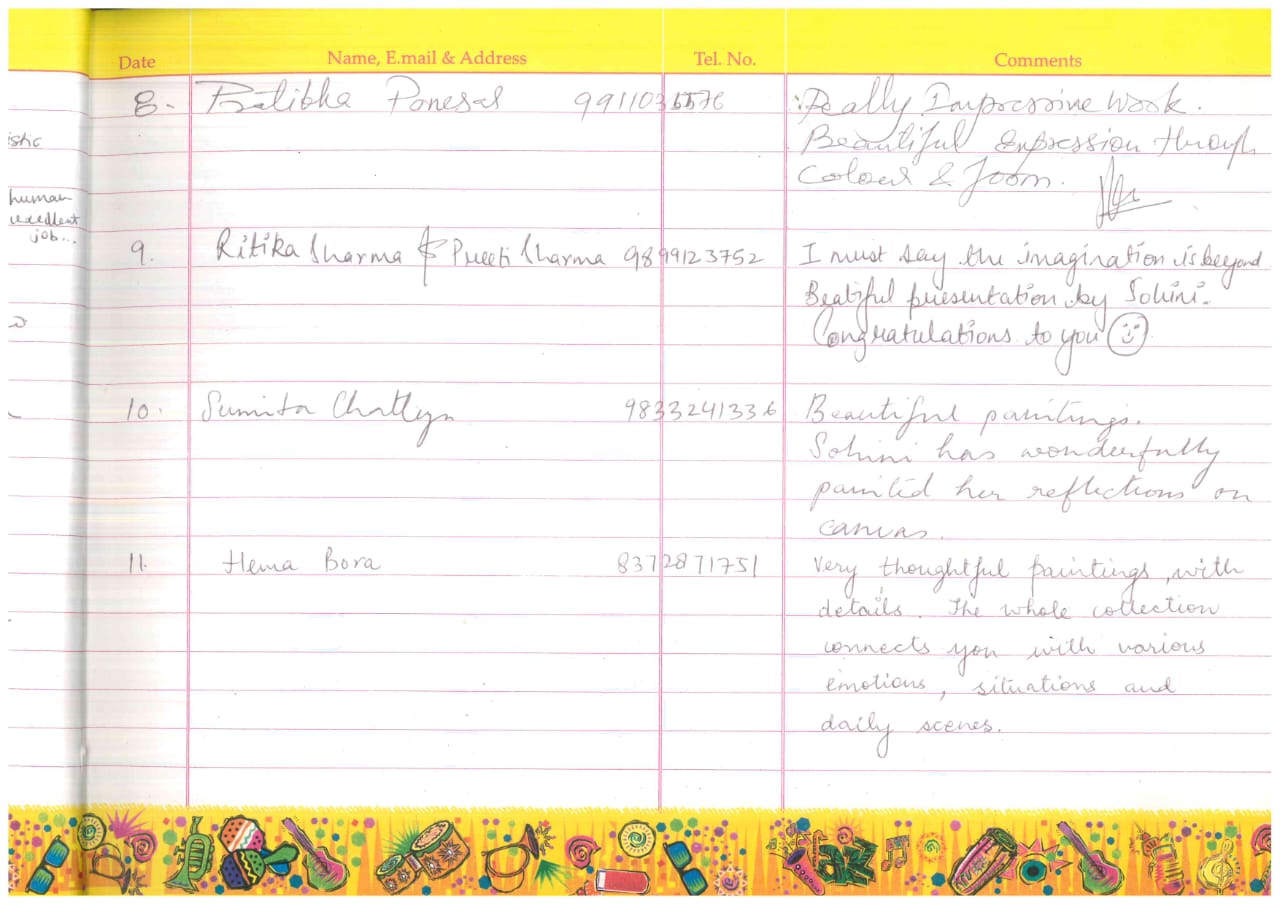 Date Name, E.mail & Address Tel. No. Comments
istic
human
excellent
job...
8. Pratibha Panesar 9911036576 Really Impressive Work.
Beautiful expression through
Colour & Form.
9. Ritika Sharma & Preeti Sharma 9899123752 I must say the imagination is beyond
Beatiful presentation by Sohini.
Congratulations to you
10. Sumita 9833241336 Beautiful paintings.
Sohini has wonderfully
painted her reflections on
canvas.
11. Hema Bora 8372871751 Very thoughtful paintings, with
details. The whole collection
connects you with various
emotions, situations and
daily scenes.